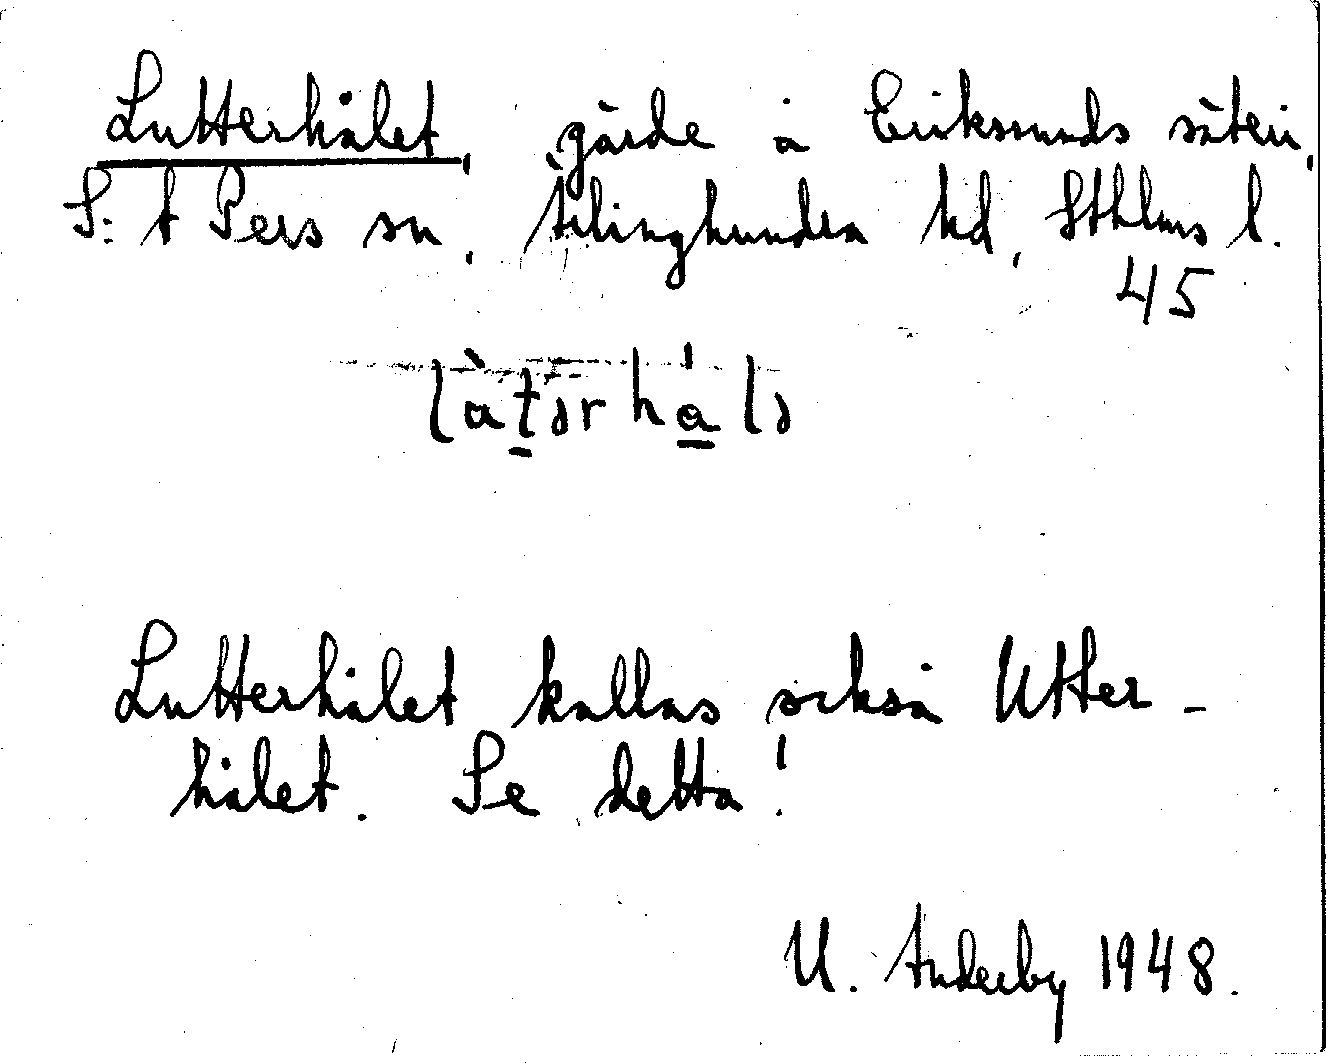 Lutterhålet, gärde å Erikssunds säteri,
S:t Pers sn, Ärlinghundra hd, Sthlms l.
45
Lutterhålet kallas också Utter-
hålet. Se detta!
U. Anderby 1948.